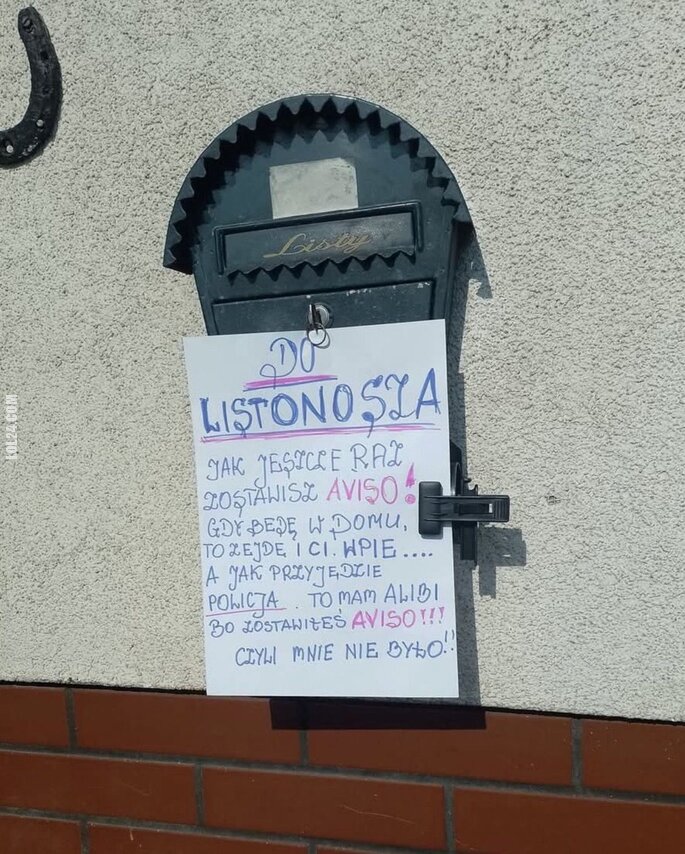 Listy
DO
LISTONOSZA
JAK JESZCZE RAZ
ZOSTAWISZ AVISO!
GDY BĘDĘ W DOMU,
TO ZEJDĘ I CI. WPIE....
A JAK PRZYJEDZIE
POLICJA . TO MAM ALIBI
BO ZOSTAWIŁEŚ AVISO!!!
CZYLI MNIE NIE BYŁO!!
LOL24.COM